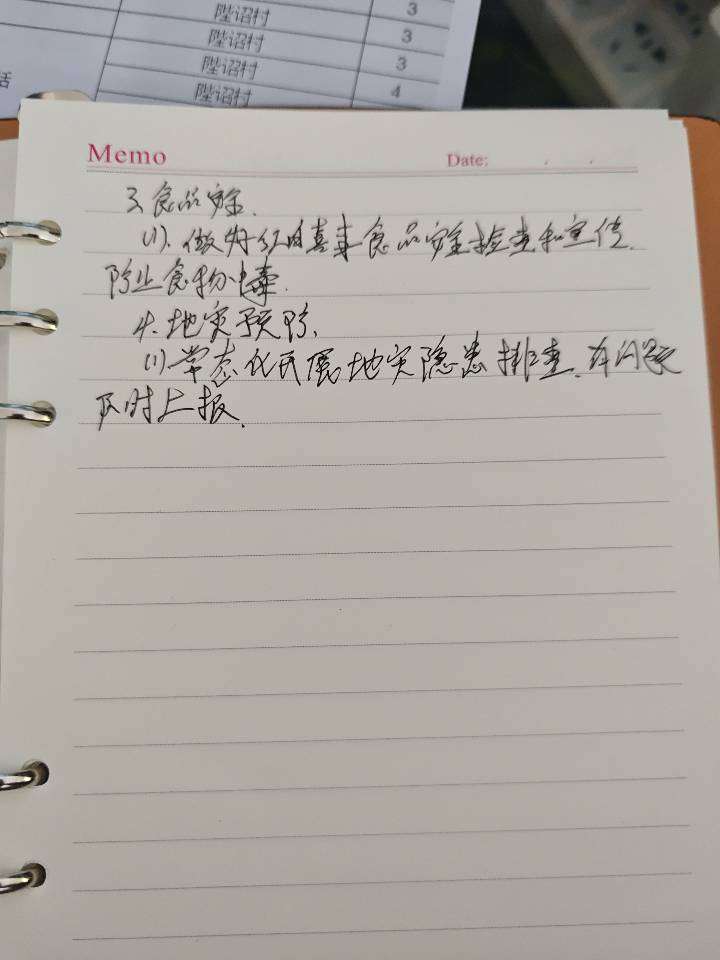 陛诏村 3
陛诏村 3
陛诏村 3
话 陛诏村 4
Memo
Date:
3 食品安全.
(1). 做好红白喜事食品安全检查和宣传.
防止食物中毒.
4. 地灾预防.
(1) 常态化开展地灾隐患排查. 有问题
及时上报.